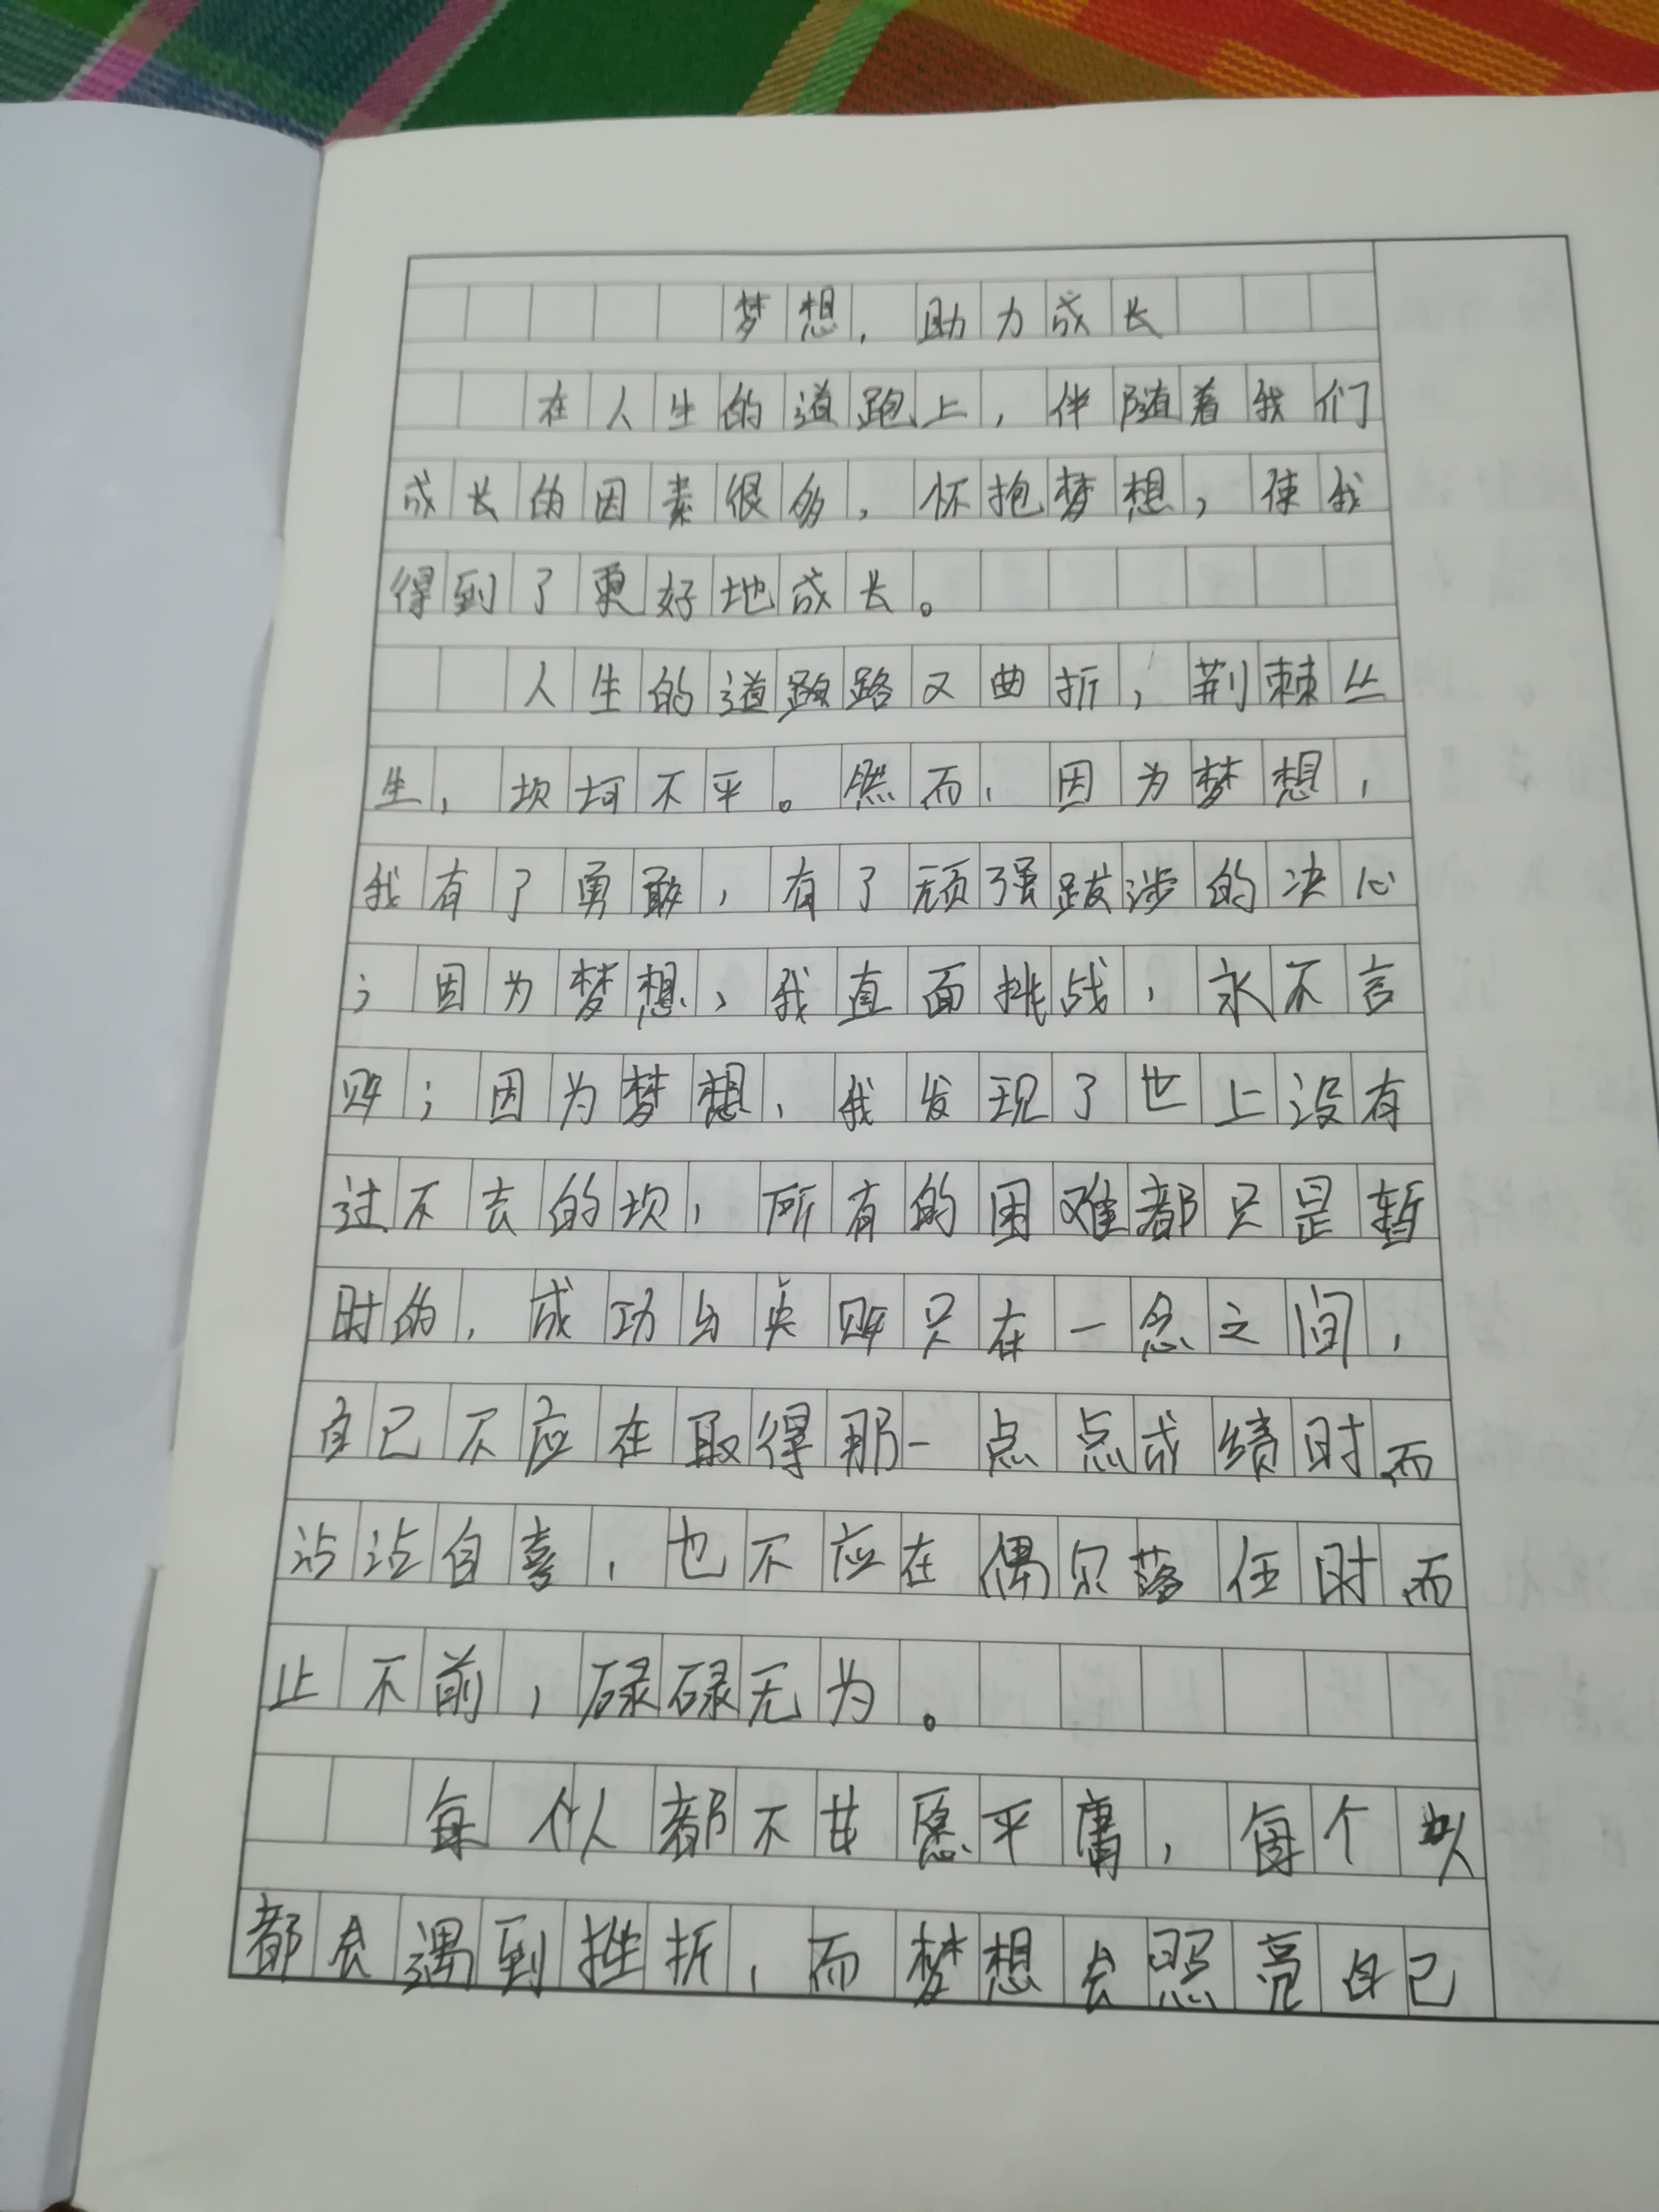 梦想，助力成长
在人生的道跑上，伴随着我们
成长的因素很多，怀抱梦想，使我
得到了更好地成长。
人生的道路又曲折，荆棘丛
生，坎坷不平。然而，因为梦想，
我有了勇敢，有了顽强跋涉的决心
；因为梦想，我直面挑战，永不言
败；因为梦想，我发现了世上没有
过不去的坎，所有的困难都只是暂
时的，成功与失败只在一念之间，
自己不应在取得那一点点成绩时而
沾沾自喜，也不应在偶尔落任时而
止不前，碌碌无为。
每个人都不甘愿平庸，每个人
都会遇到挫折，而梦想会照亮自己